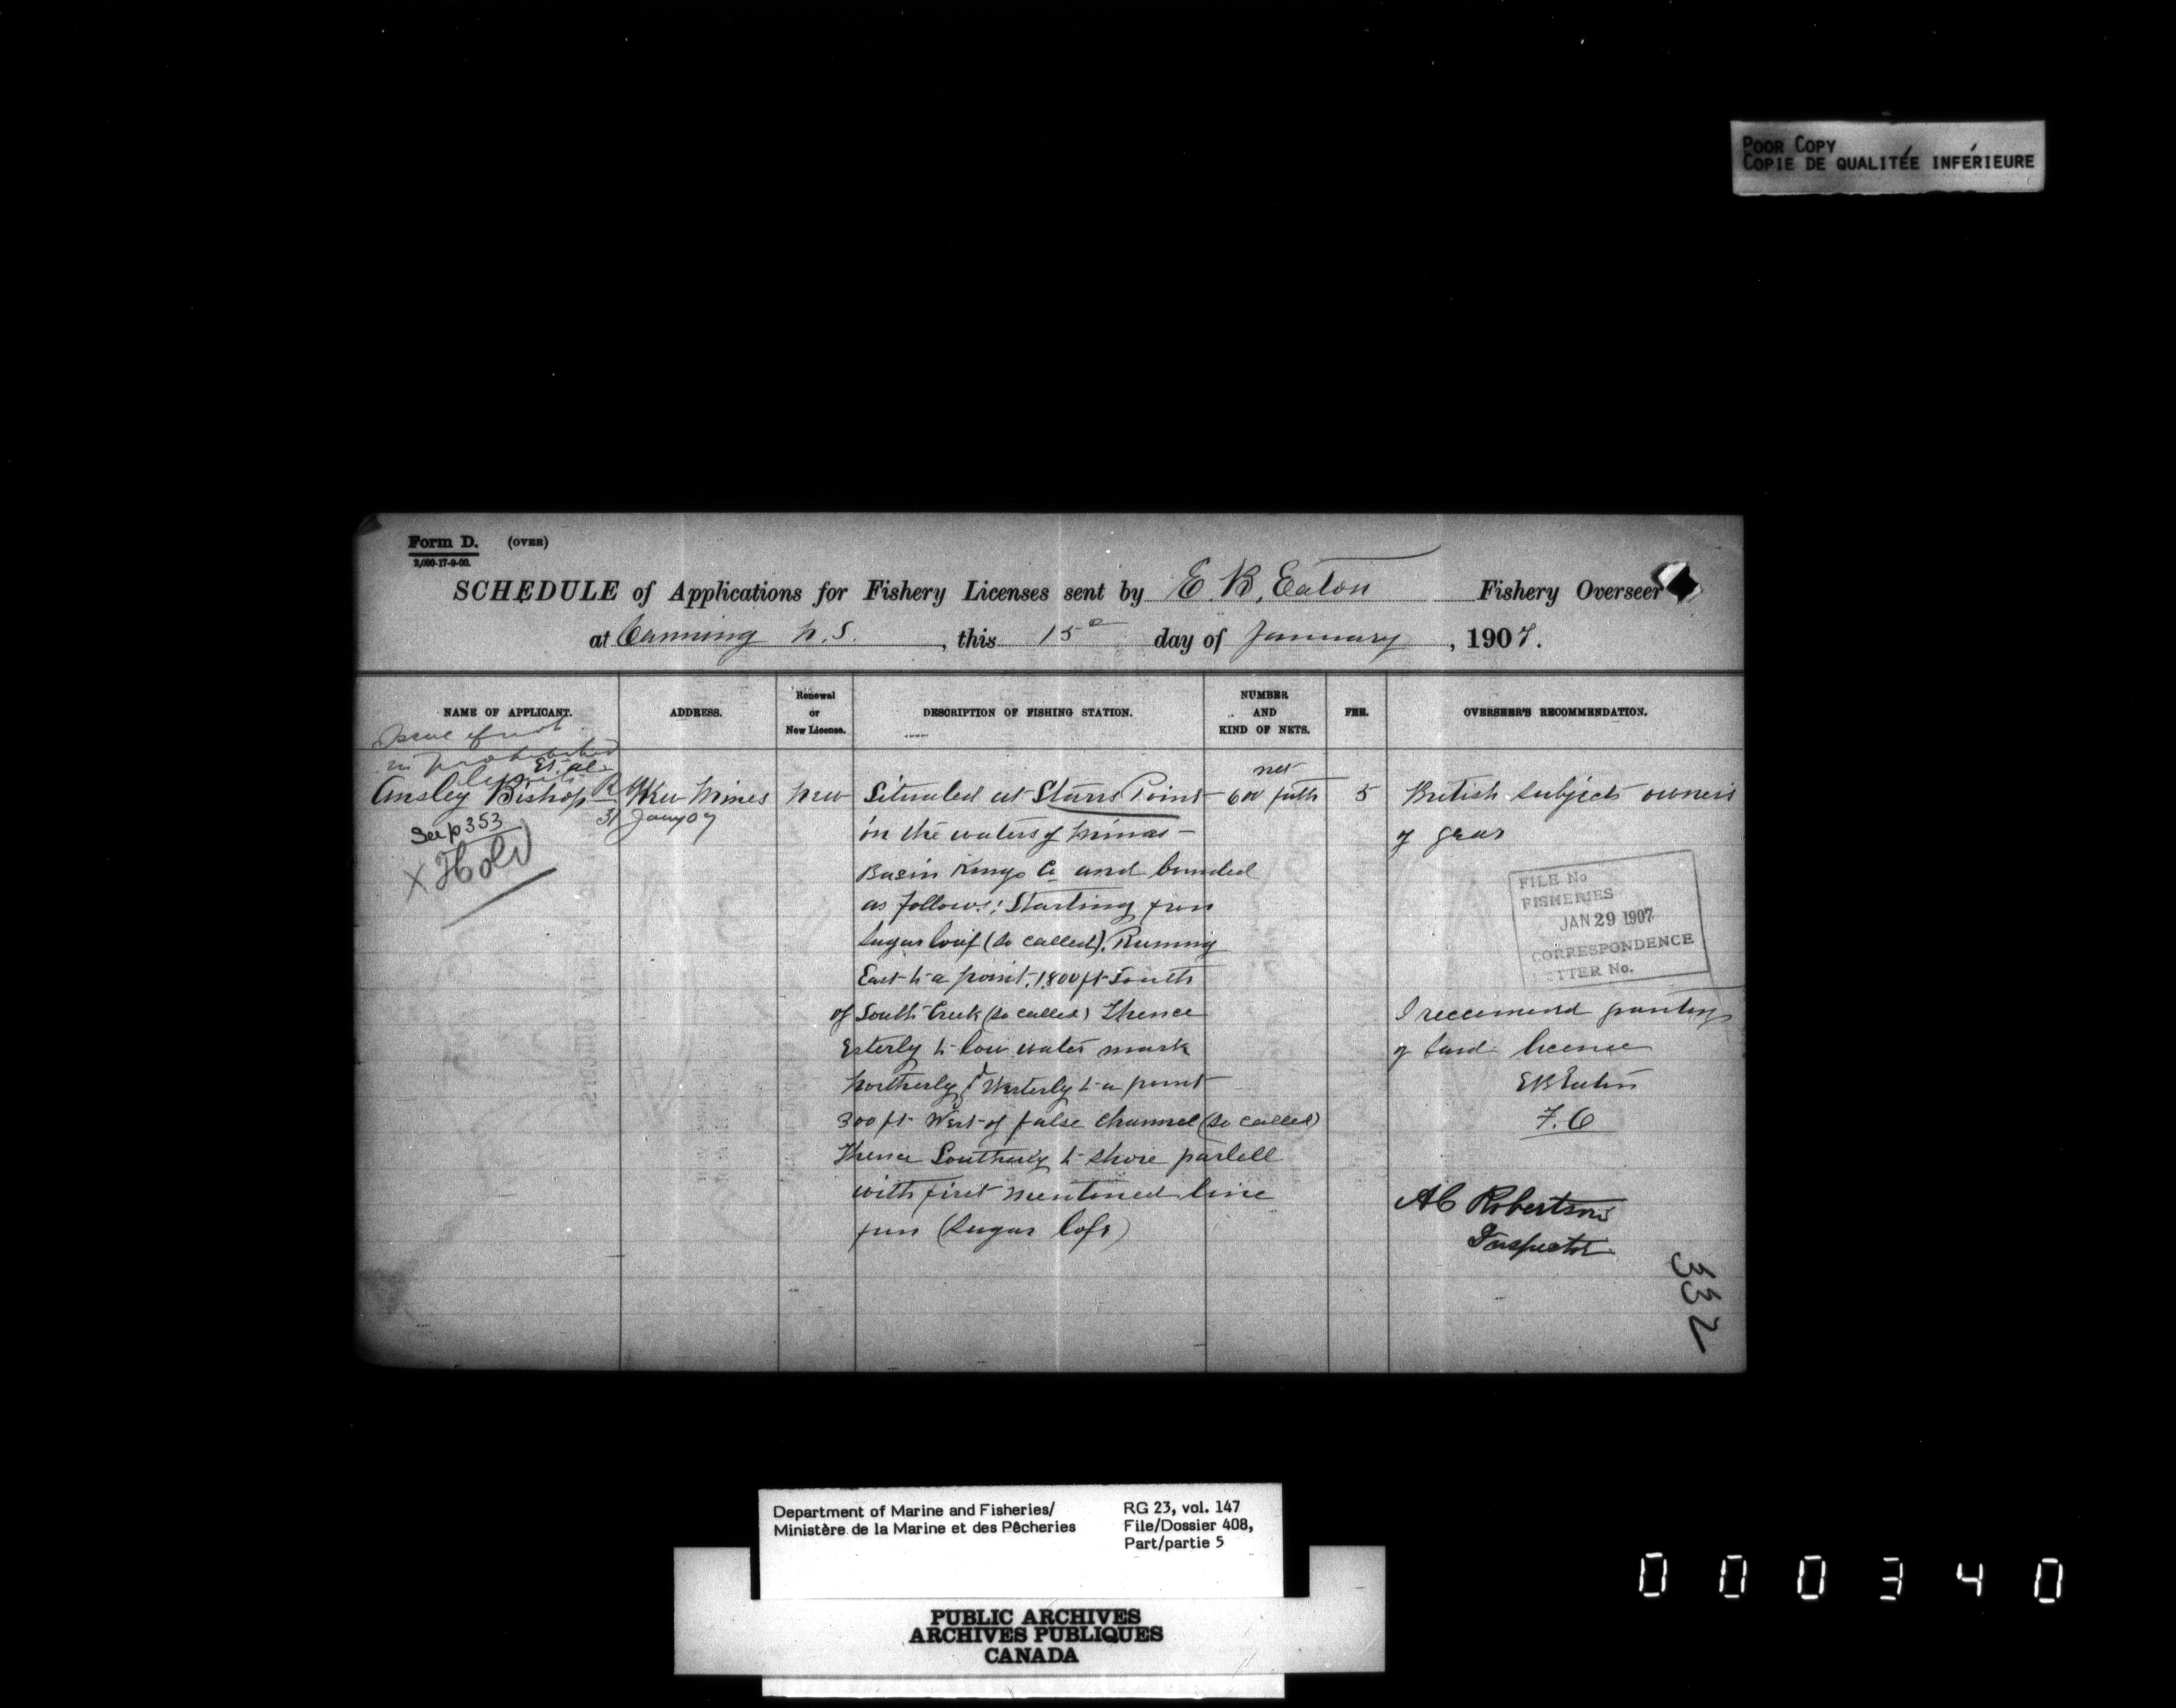 POOR COPY
COPIE DE QUALITÉE INFÉRIEURE
Form D. (OVER)
2,000-17-9-00.
SCHEDULE of Applications for Fishery Licenses sent by E. B. Eaton Fishery Overseer
at Canning N.S. , this 15 day of January , 1907.
NAME OF APPLICANT.
ADDRESS.
Renewal
or
New License.
DESCRIPTION OF FISHING STATION.
NUMBER
AND
KIND OF NETS.
FEE.
OVERSEER'S RECOMMENDATION.
Issue if not
in prohibited
limits
Et. al.
Ansley Bishop
Mines
31 Jany 07
See p 353
x Hold
New
Situated at Starrs Point
in the waters of Minas
Basin Kings Co and bounded
as follows: Starting from
Sugar loaf (so called). Running
East to a point, 1,800 ft South
of South Creek (so called) Thence
Esterly to low water mark
Northerly & Westerly to a point
300 ft West of false channel (so called)
Thence Southerly to shore parlell
with first mentioned line
from (Sugar lofs)
net
600 fath
5
British subjects owners
of gear
FILE No
FISHERIES
JAN 29 1907
CORRESPONDENCE
ETTER No.
I reccomend granting
of said license
EB Eaton
F. O
AC Robertson
Inspector
332
Department of Marine and Fisheries/
Ministère de la Marine et des Pêcheries
RG 23, vol. 147
File/Dossier 408,
Part/partie 5
PUBLIC ARCHIVES
ARCHIVES PUBLIQUES
CANADA
000340